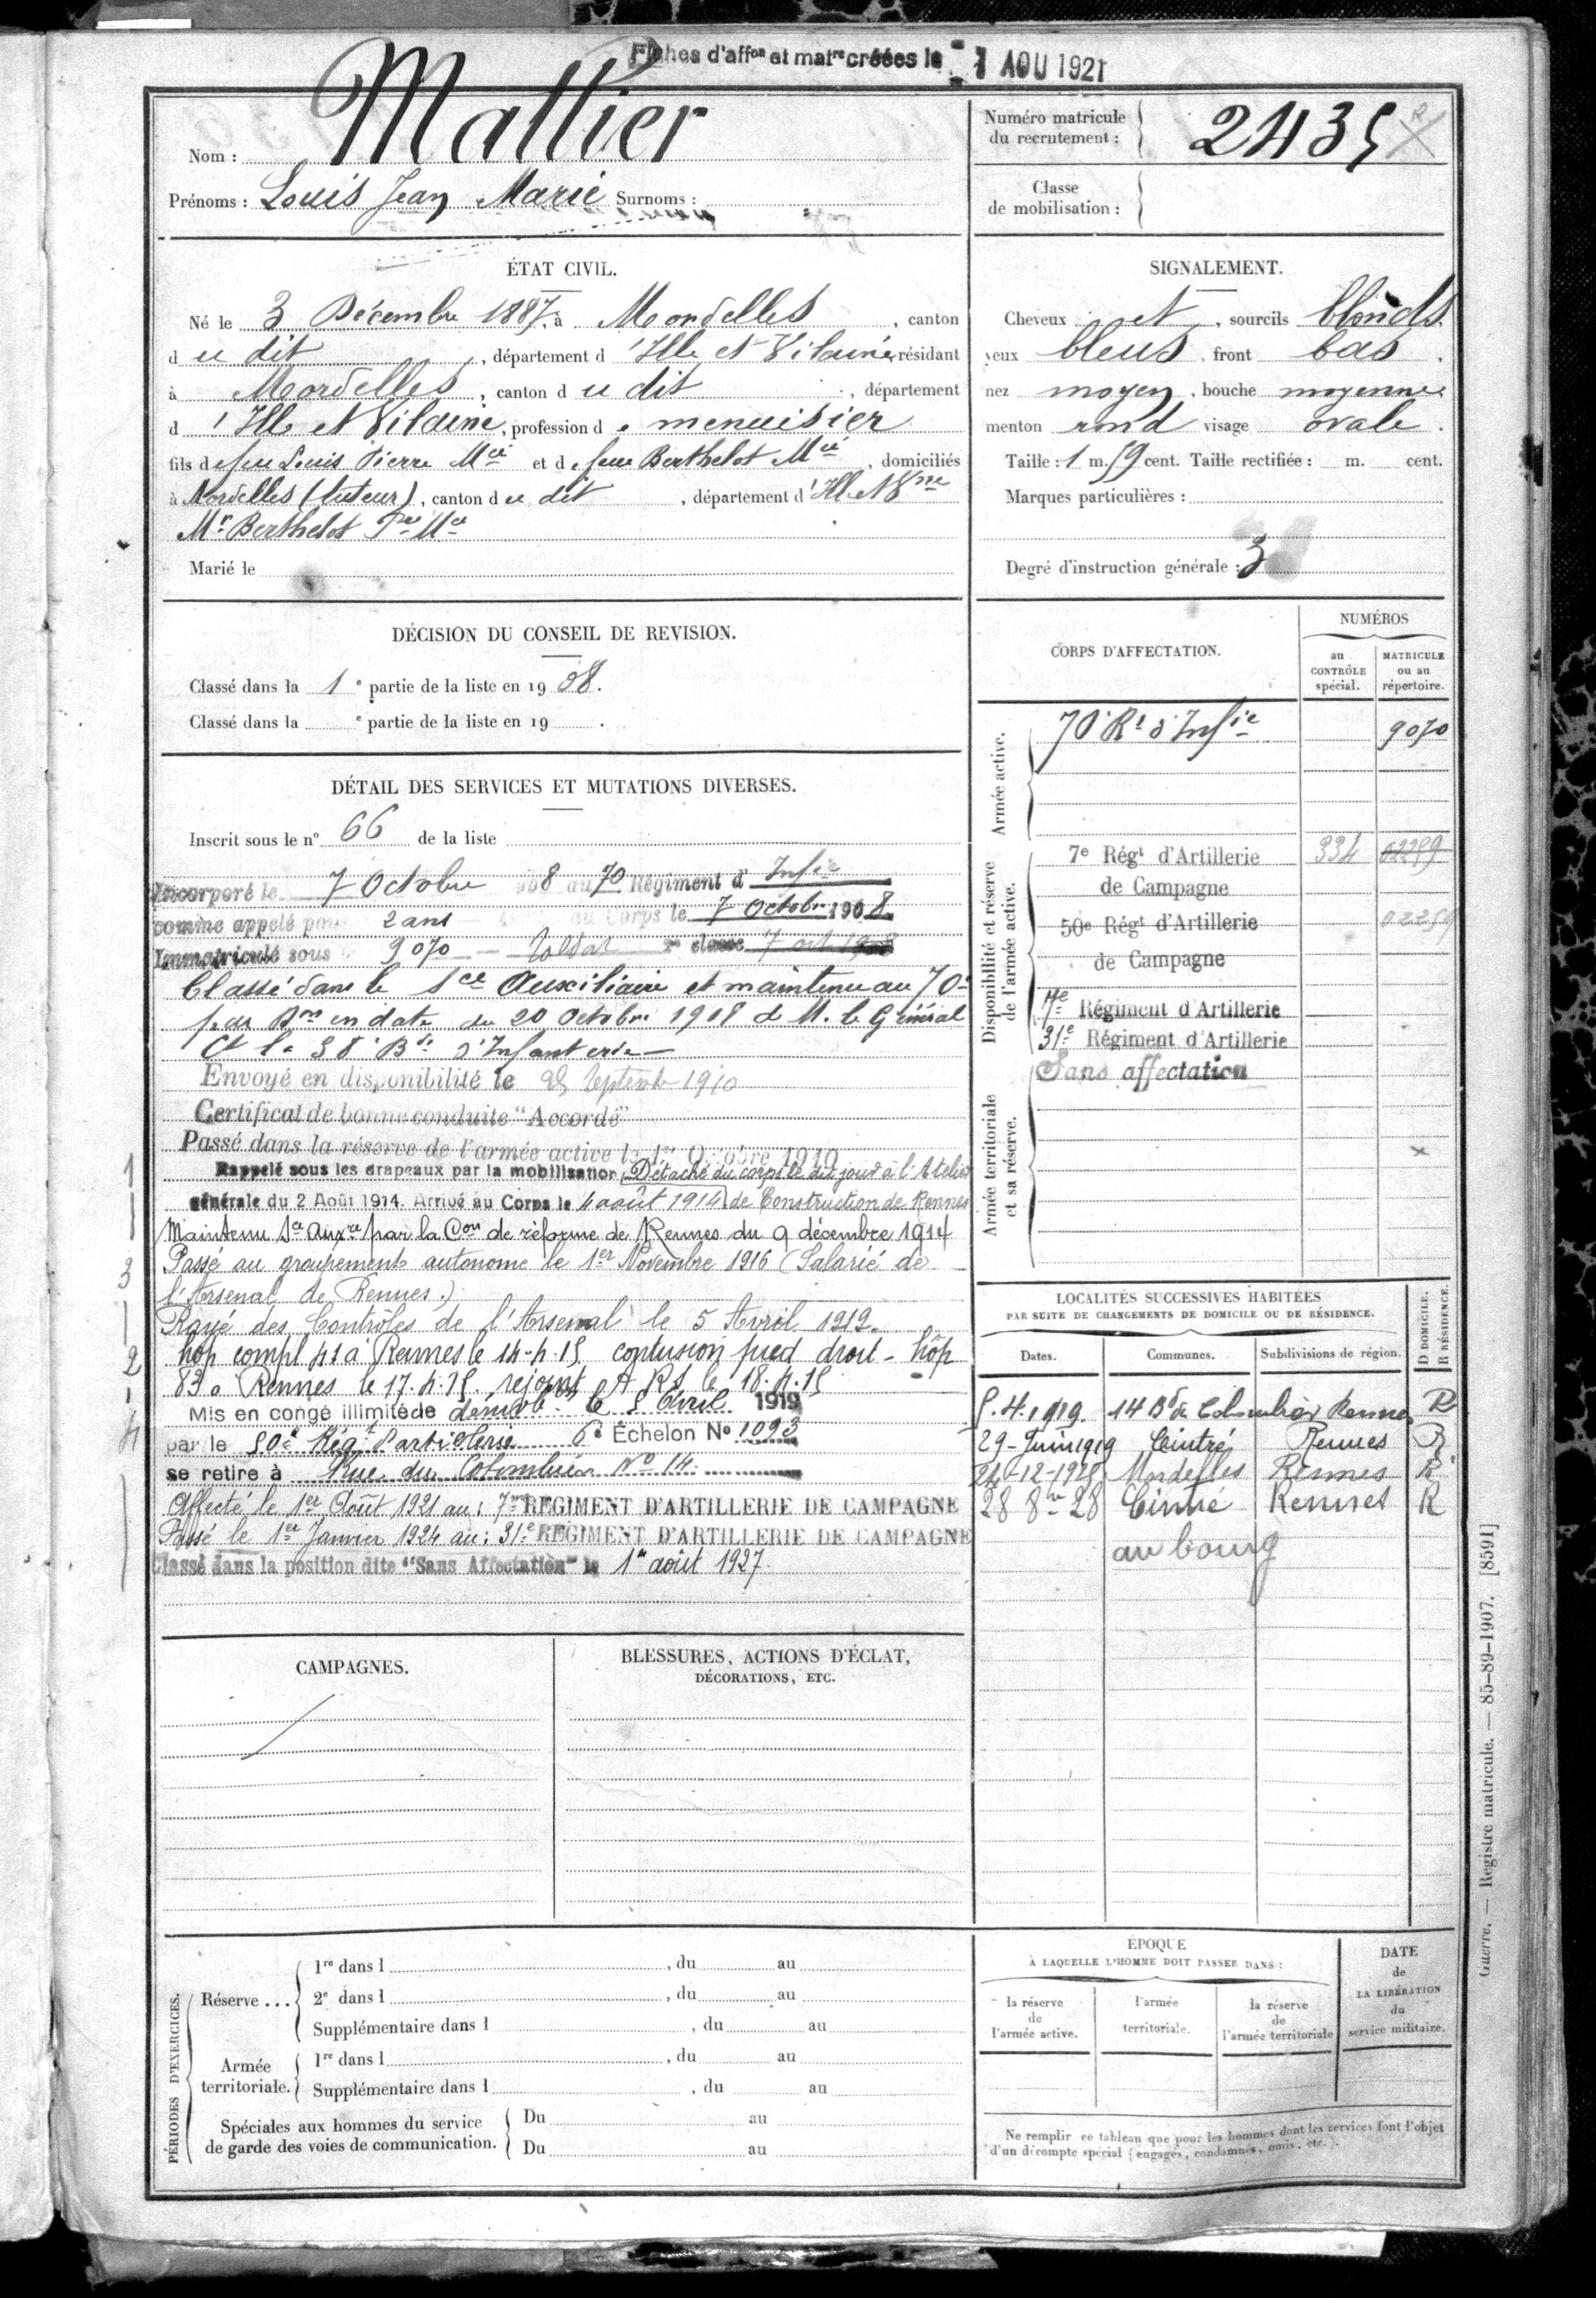 Fiches d'affon et matre créées le 1 AOU 1921
Nom : Mallier
Prénoms : Louis Jean Marie Surnoms :
Numéro matricule
du recrutement : 2435
R
Classe
de mobilisation :
ÉTAT CIVIL.
Né le 3 Décembre 1887, à Mordelles, canton
du dit, département d'Ille et Vilaine, résidant
à Mordelles, canton du dit, département
d'Ille et Vilaine, profession de menuisier
fils de feu Louis Pierre Mie et de feue Berthelot Mie, domiciliés
à Mordelles (tuteur), canton du dit, département d'Ille et Vne
Mr Berthelot Pre Mie
Marié le
SIGNALEMENT.
Cheveux et, sourcils blonds
yeux bleus, front bas.
nez moyen, bouche moyenne
menton rond visage ovale.
Taille : 1 m. 59 cent. Taille rectifiée : m. cent.
Marques particulières :
Degré d'instruction générale : 3
DÉCISION DU CONSEIL DE REVISION.
Classé dans la 1e partie de la liste en 1908.
Classé dans la e partie de la liste en 19 .
DÉTAIL DES SERVICES ET MUTATIONS DIVERSES.
Inscrit sous le n° 66 de la liste
Incorporé le 7 Octobre 1908 au 70 Régiment d'Infie
comme appelé pour 2 ans au Corps le 7 Octobre 1908.
Immatriculé sous le 9070 Soldat 2e classe 7 oct 1908
Classé dans le Sce Auxiliaire et maintenu au 70e
par Don en date du 20 Octobre 1918 de M. le Général
Ct la 38e Bde d'Infanterie
Envoyé en disponibilité le 25 Septembre 1910
Certificat de bonne conduite "Accordé"
Passé dans la réserve de l'armée active le 1er Octobre 1910
1
Rappelé sous les drapeaux par la mobilisation Détaché du corps le dit jour à l'Atelier
générale du 2 Août 1914. Arrivé au Corps le 4 août 1914 de Construction de Rennes
Maintenu Sce Auxre par la Con de réforme de Rennes du 9 décembre 1914
3
Passé au groupement autonome le 1er Novembre 1916 (Salarié de
l'Arsenal de Rennes.)
Rayé des Contrôles de l'Arsenal le 5 Avril 1919.
2
hôp compl 41 à Rennes le 14-4-15. contusion pied droit - hôp
83 à Rennes le 17.4.15. rejoint A R S le 18.4.15
4
Mis en congé illimité de démobon le 5 Avril 1919
par le 50e Régt d'artillerie 6e Échelon No 1093
se retire à Rue du Colombier No 14.
Affecté le 1er Août 1921 au : 7me REGIMENT D'ARTILLERIE DE CAMPAGNE
Passé le 1er Janvier 1924 au : 31e REGIMENT D'ARTILLERIE DE CAMPAGNE
Classé dans la position dite "Sans Affectation" le 1er août 1927.
CAMPAGNES.
BLESSURES, ACTIONS D'ÉCLAT,
DÉCORATIONS, ETC.
CORPS D'AFFECTATION.
NUMÉROS
au
CONTRÔLE
spécial.
MATRICULE
ou au
répertoire.
Armée active.
70e Rt d'Infie 9070
Disponibilité et réserve
de l'armée active.
7e Régt d'Artillerie 334 02259
de Campagne
50e Régt d'Artillerie 02259
de Campagne
7e Régiment d'Artillerie
31e Régiment d'Artillerie
Sans affectation
Armée territoriale
et sa réserve.
LOCALITÉS SUCCESSIVES HABITÉES
PAR SUITE DE CHANGEMENTS DE DOMICILE OU DE RÉSIDENCE.
Dates.
Communes.
Subdivisions de région.
D DOMICILE.
R RÉSIDENCE.
5.4.1919. 14 Bd du Colombier Rennes R
29-Juin 1919 Cintré Rennes R
24-12-1925 Mordelles Rennes R
28 8re 28 Cintré Rennes R
au bourg
PÉRIODES D'EXERCICES.
Réserve ...
1re dans l , du au
2e dans l , du au
Supplémentaire dans l , du au
Armée
territoriale.
1re dans l , du au
Supplémentaire dans l , du au
Spéciales aux hommes du service
de garde des voies de communication.
Du au
Du au
ÉPOQUE
À LAQUELLE L'HOMME DOIT PASSER DANS :
la réserve
de
l'armée active.
l'armée
territoriale.
la réserve
de
l'armée territoriale
DATE
de
LA LIBÉRATION
du
service militaire.
Ne remplir ce tableau que pour les hommes dont les services font l'objet
d'un décompte spécial (engagés, condamnés, omis, etc.).
Guerre. — Registre matricule. — 85-89-1907. [8591]